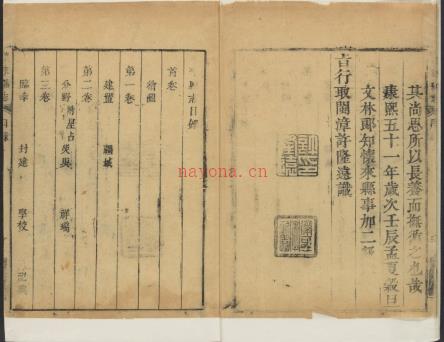 其尚思所以長養而撫衛之也哉
康熙五十一年歲次壬辰孟夏穀日
文林郎知懷來縣事加二級
音行取閩漳許隆遠識
目錄
首卷
繪圖
第一卷
建置 疆域
第二卷
分野 附星占災異 祥瑞
第三卷
臨幸 封建 學校
nayona.cn